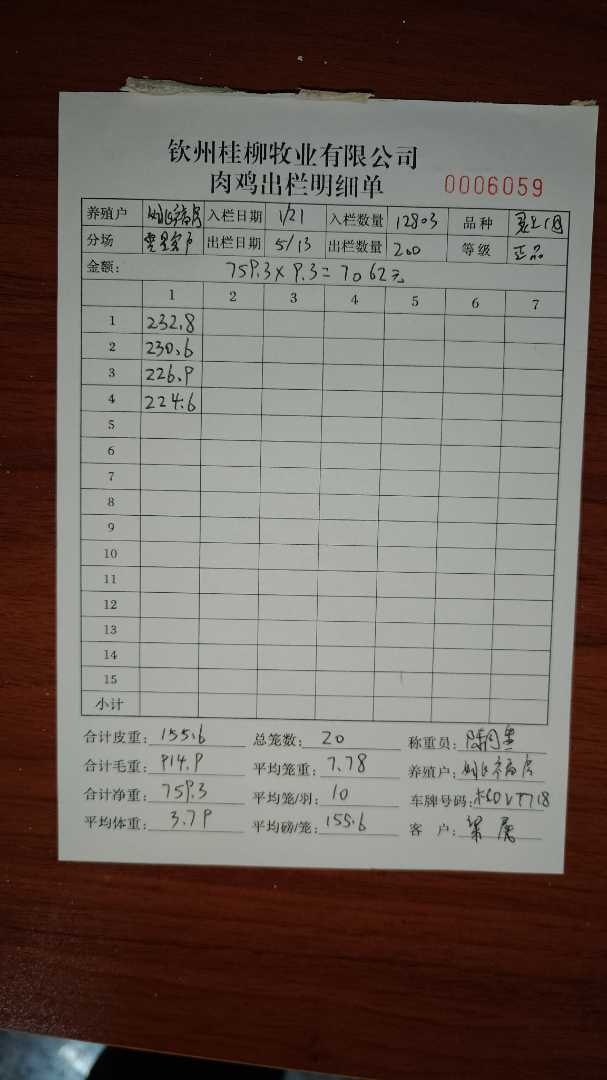 钦州桂柳牧业有限公司
肉鸡出栏明细单 0006059
养殖户 入栏日期 1/21 入栏数量 12803 品种
分场 出栏日期 5/13 出栏数量 200 等级 正品
金额: 759.3×9.3=7062元
1 2 3 4 5 6 7
1 232.8
2 230.6
3 226.9
4 224.6
5
6
7
8
9
10
11
12
13
14
15
小计
合计皮重: 155.6 总笼数: 20 称重员:
合计毛重: 914.9 平均笼重: 7.78 养殖户:
合计净重: 759.3 平均笼/羽: 10 车牌号码:
平均体重: 3.79 平均磅/笼: 155.6 客 户: 梁